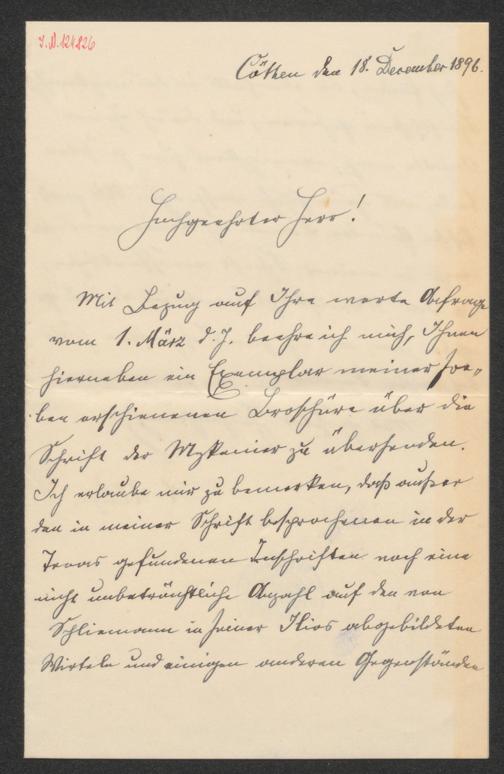 I.N. 124826
Cöthen den 18. December 1896.
Hochgeehrter Herr!
Mit Bezug auf Ihre werte Anfrage
vom 1. März d. J. beehre ich mich, Ihnen
hierneben ein Exemplar meiner soe-
ben erschienenen Broschüre über die
Schrift der Mykenier zu übersenden.
Ich erlaube mir zu bemerken, daß außer
den in meiner Schrift besprochenen in der
Troas gefundenen Inschriften noch eine
nicht unbeträchtliche Anzahl auf den von
Schliemann in seiner Ilios abgebildeten
Wirteln und einigen anderen Gegenständen